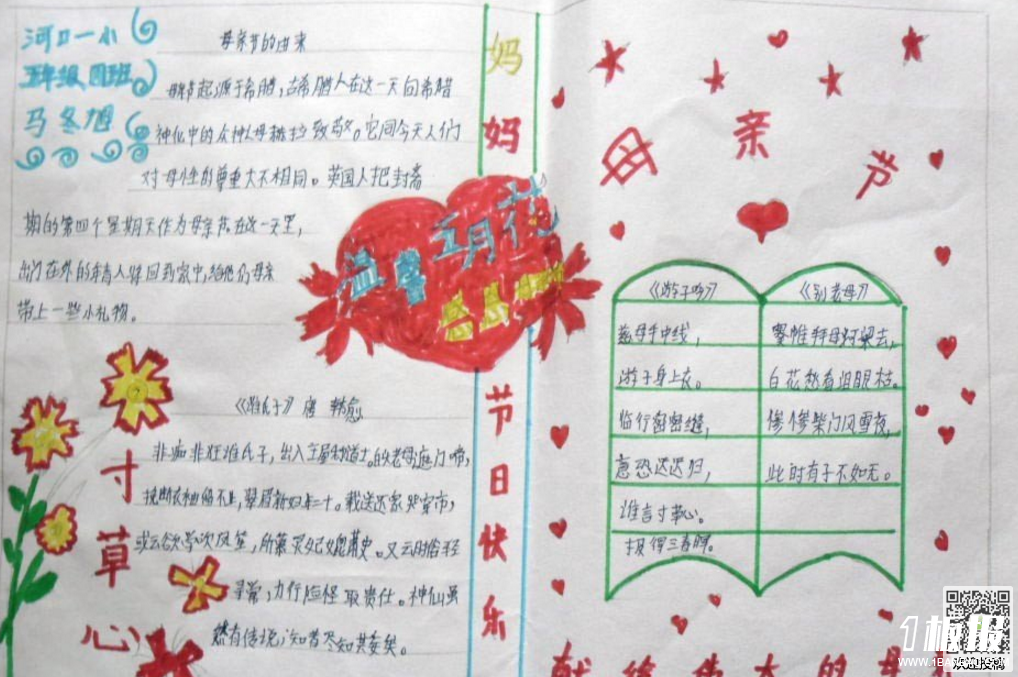 河口一小
五年级四班
马冬旭
母亲节的由来
母亲节起源于希腊,古希腊人在这一天向希腊
神化中的众神之母赫拉致敬。它同今天人们
对母性的尊重大不相同。英国人把封斋
期的第四个星期天作为母亲节在这一天里,
出门在外的年青人将回到家中,给他们母亲
带上一些小礼物。
《谁氏子》唐 韩愈
非痴非狂谁氏子,出入王屋称道士。白头老母遮门啼,
挽断衫袖留不止,翠眉新妇年二十。载送还家哭穿市,
或云欲学吹凤笙,所慕灵妃媲萧史。又云时俗轻
寻常,力行险怪取贵仕。神仙虽
然有传说,知者尽知其妄矣。
寸草心
妈妈
温馨五月花
节日快乐
母亲节
《游子吟》
慈母手中线,
游子身上衣。
临行密密缝,
意恐迟迟归,
谁言寸草心。
报得三春晖。
《别老母》
搴帷拜母河梁去,
白花愁看泪眼枯。
惨惨柴门风雪夜,
此时有子不如无。
献给伟大的母
1板报
WWW.1BANBAO.COM
欢迎投稿